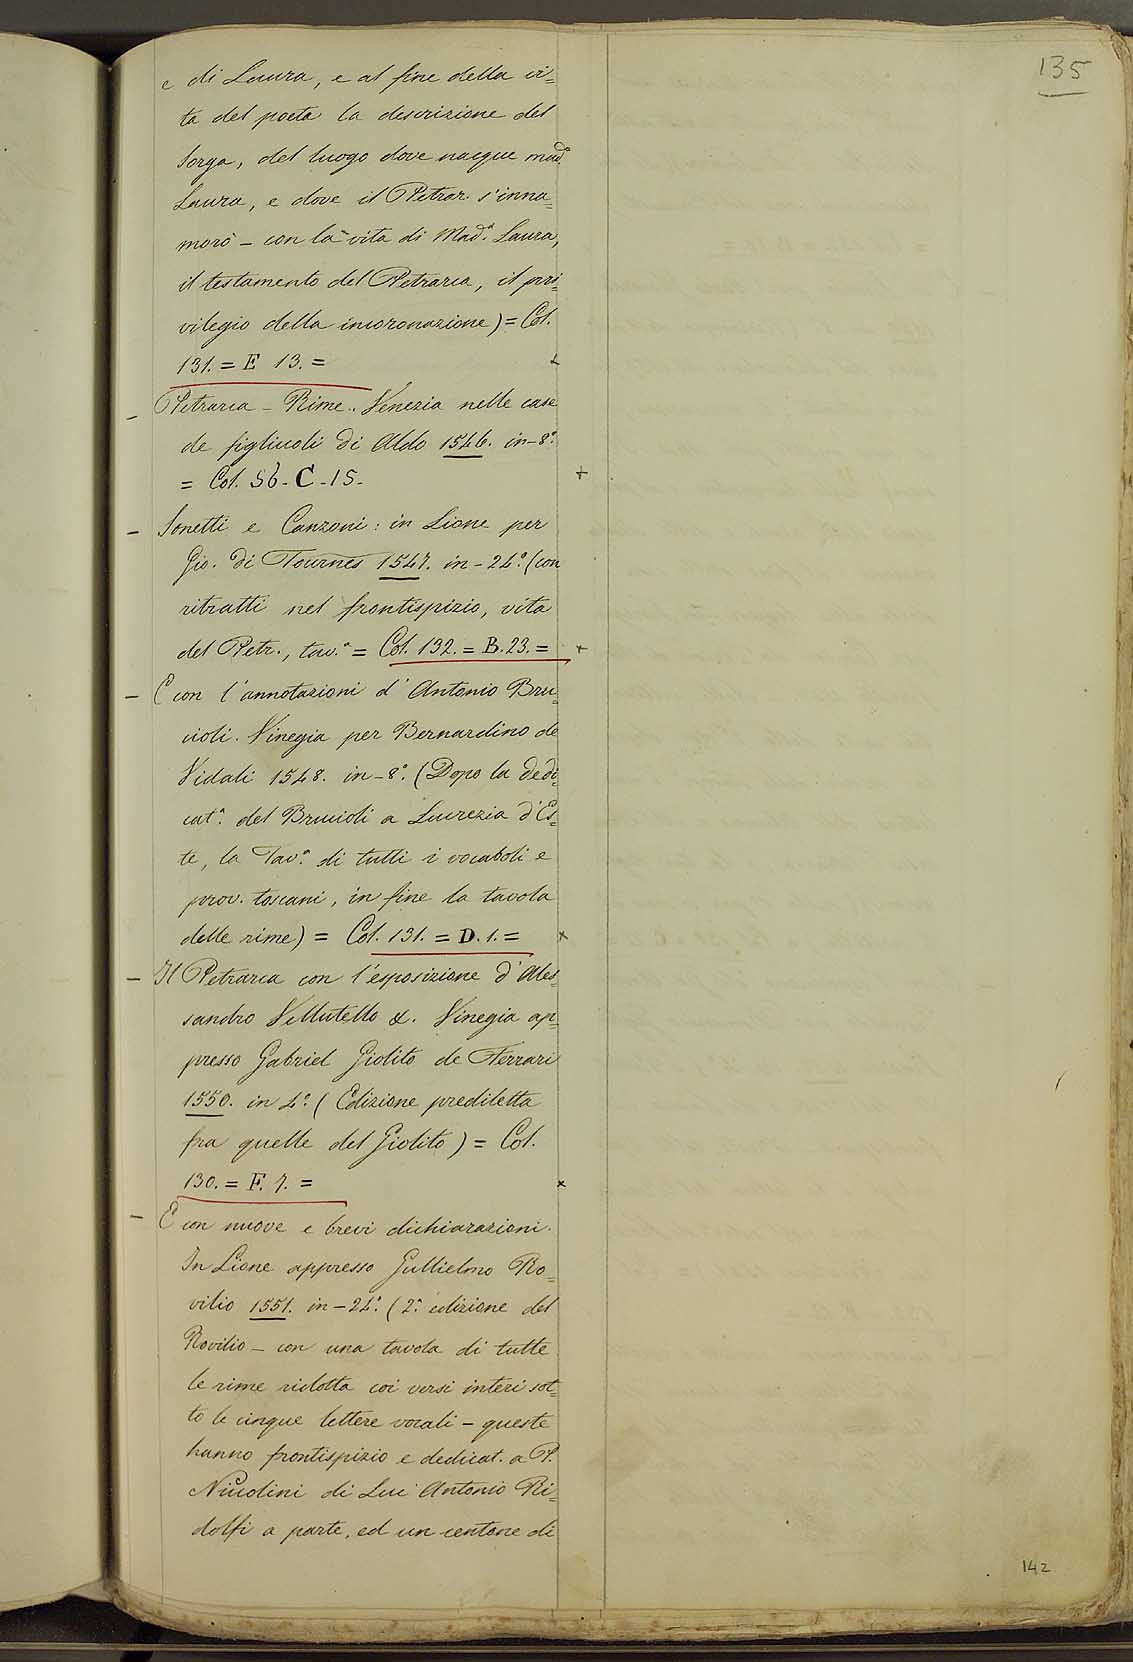 135
e di Laura, e al fine della vi=
ta del poeta la descrizione del
Sorga, del luogo dove nacque mad.ª
Laura, e dove il Petrar. s'inna=
morò – con la vita di Mad.ª Laura,
il testamento del Petrarca, il pri=
vilegio della incoronazione) = Col.
131. = E 13. = x
– Petrarca – Rime.. Venezia nelle case
de figliuoli di Aldo 1546. in–8.º
= Col. 56- C -15- +
– Sonetti e Canzoni: in Lione per
Gio. di Tournes 1547. in–24.º (con
ritratti nel frontispizio, vita
del Petr., tav.ª = Col. 132. = B. 23. = x
– E con l'annotazioni d'Antonio Bru=
cioli. Vinegia per Bernardino de
Vidali 1548. in–8.º (Dopo la dedi=
cat.ª del Brucioli a Lucrezia d'Es=
te, la Tav.ª di tutti i vocaboli e
prov. toscani, in fine la tavola
delle rime) = Col. 131. = D. 1. = x
– Il Petrarca con l'esposizione d'Ales=
sandro Vellutello &. Vinegia ap=
presso Gabriel Giolito de Ferrari
1550. in 4.º (Edizione prediletta
fra quelle del Giolito) = Col.
130. = F. 7. = x
– E con nuove e brevi dichiarazioni.
In Lione appresso Gullielmo Ro=
vilio 1551. in–24.º (2.ª edizione del
Rovilio – con una tavola di tutte
le rime ridotta coi versi interi sot=
to le cinque lettere vocali – queste
hanno frontispizio e dedicat. a P.
Niccolini di Luc'Antonio Ri=
dolfi a parte, ed un centone di
142